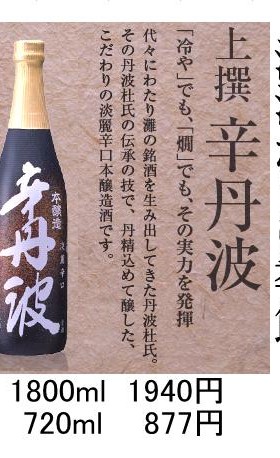 上撰 辛丹波
「冷や」でも、「燗」でも、その実力を発揮
代々にわたり灘の銘酒を生み出してきた丹波杜氏。
その丹波杜氏の伝承の技で、丹精込めて醸した、
こだわりの淡麗辛口本醸造酒です。
本醸造
辛丹波
淡麗辛口
1800ml 1940円
720ml 877円